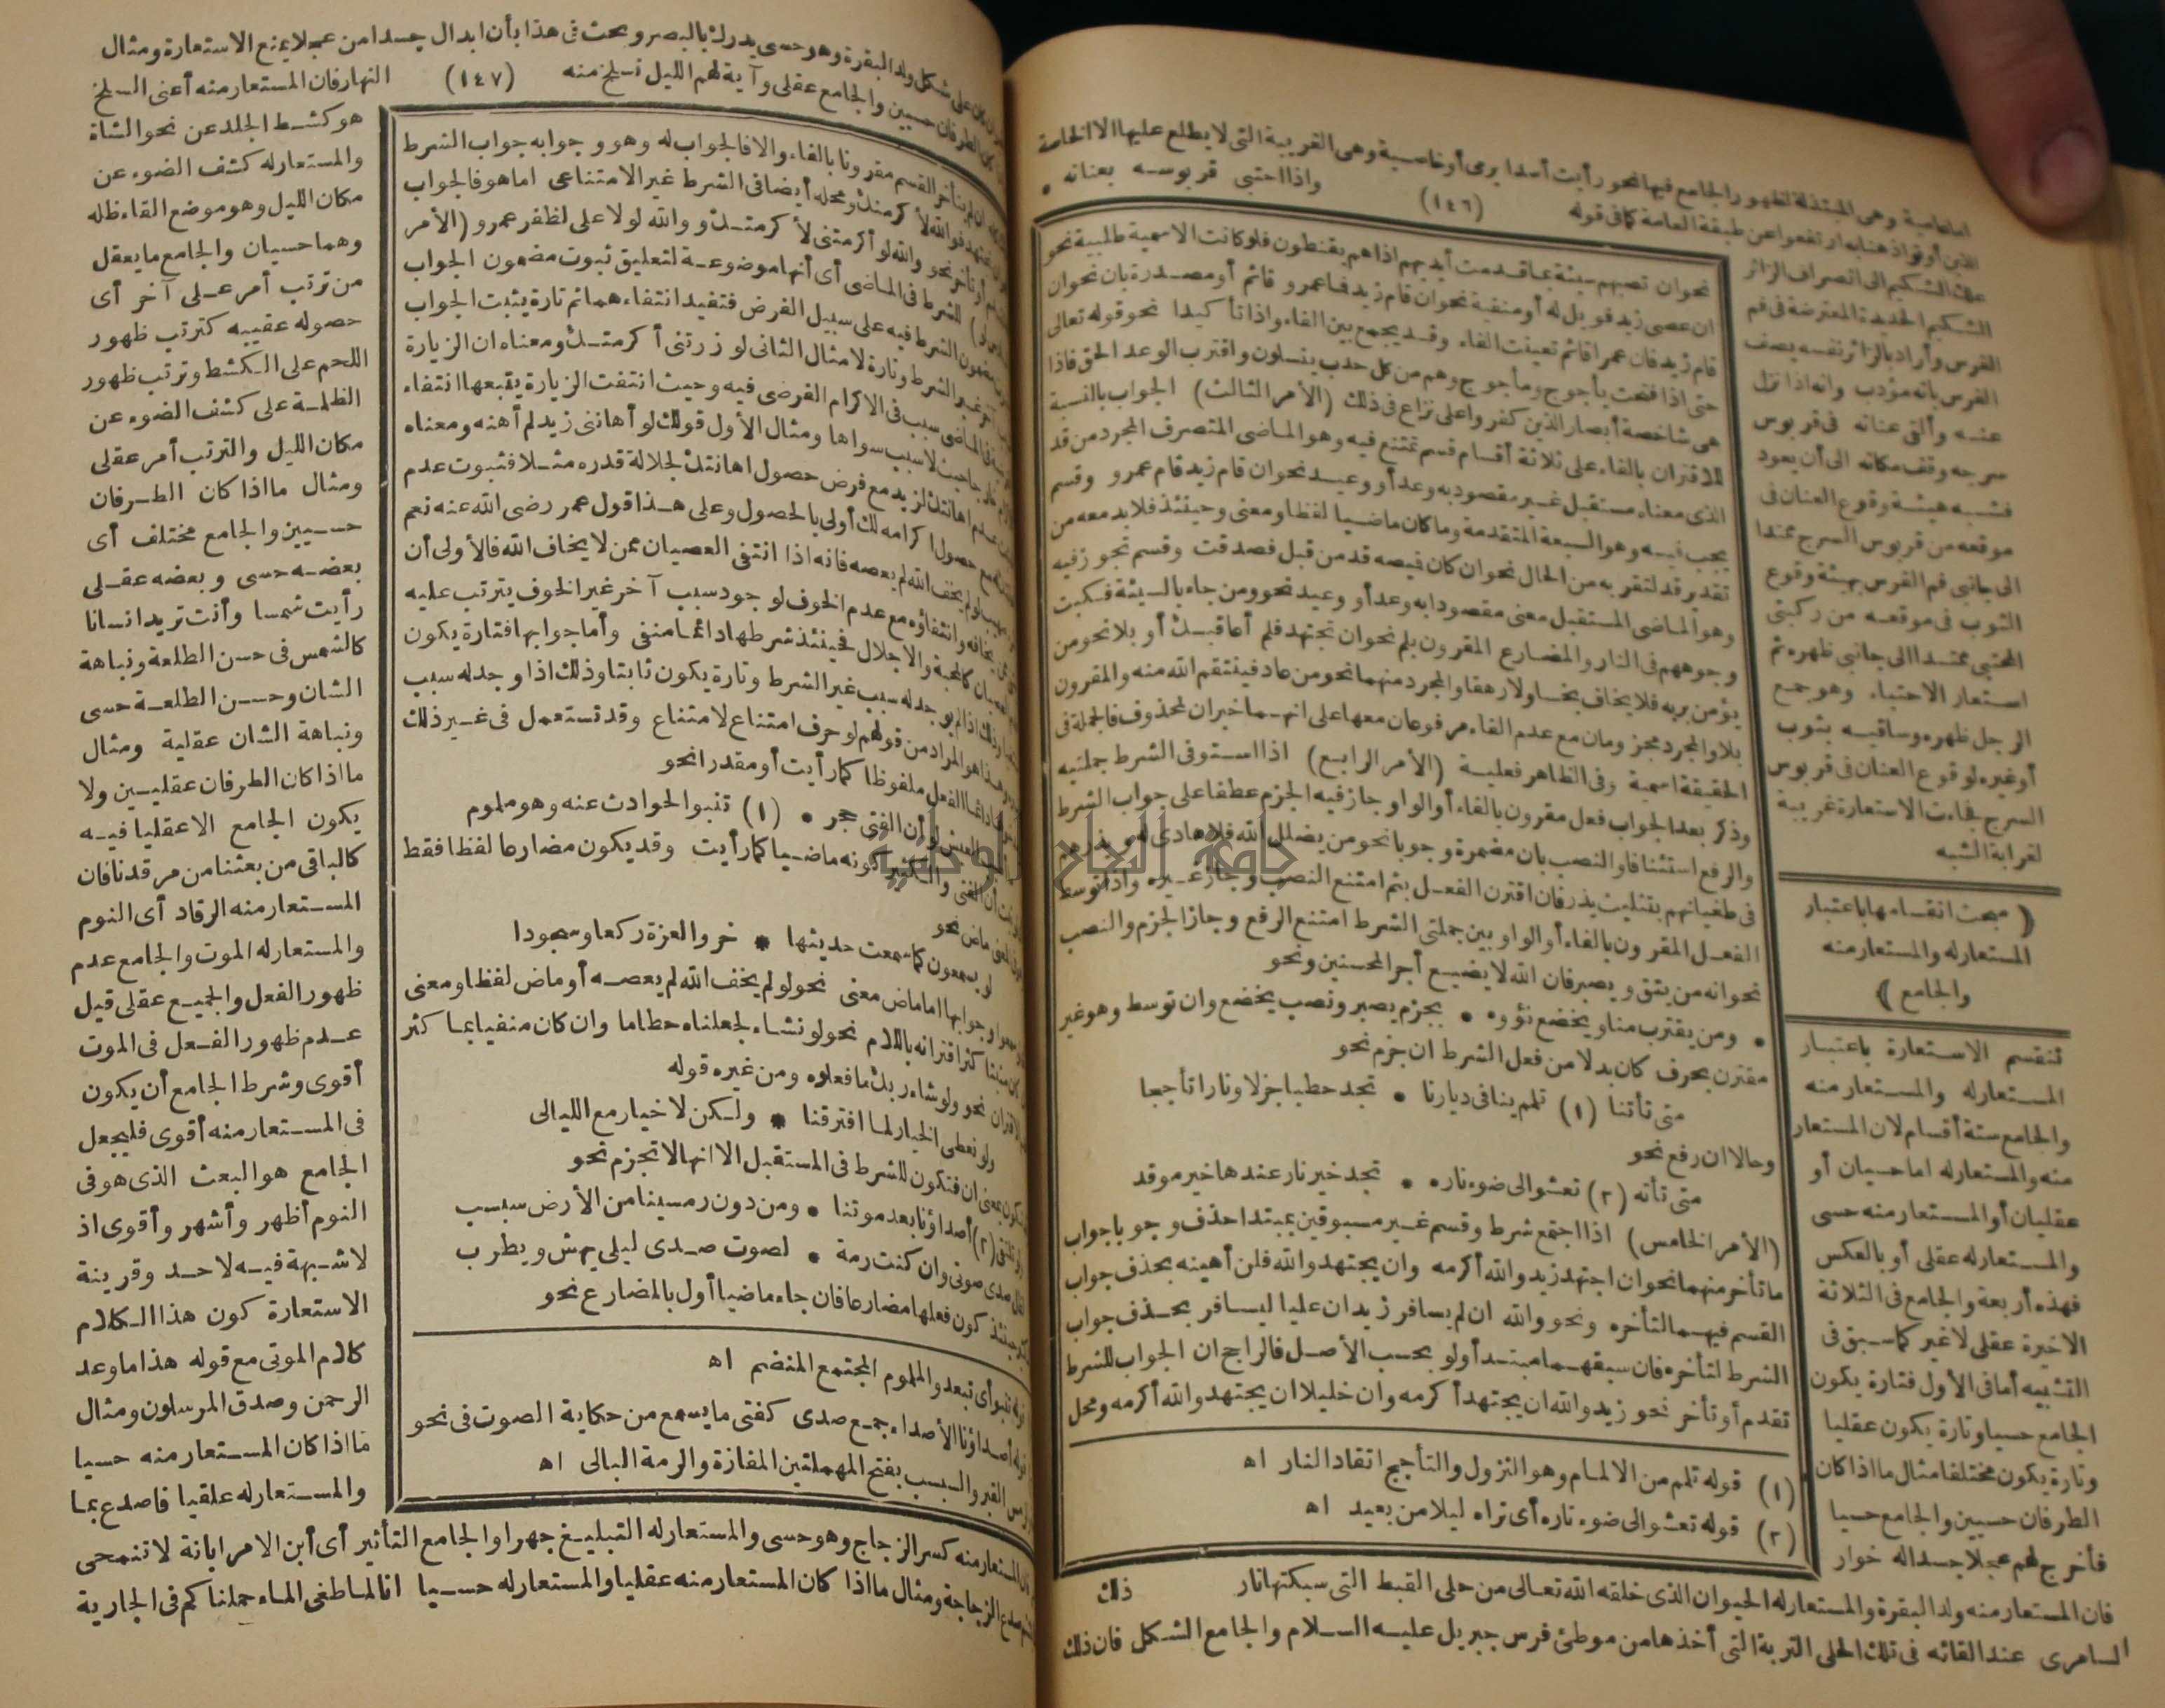 اما عامية وهى المبتذلة لظهور الجامع فيها نحو رأيت أسدا يرمى أو خاصية وهى الغريبة التى لا يطلع عليها الا الخاصة
الذين أوتوا ذهنا به ارتفعوا عن طبقة العامة كما فى قوله (١٤٦) واذا احتبى قربوسه بعنانه •
علك الشكيم الى انصراف الزائر
الشكيم الحديدة المعترضة فى فم
الفرس وأراد بالزائر نفسه يصف
الفرس بانه مؤدب وانه اذا نزل
عنه وألقى عنانه فى قربوس
سرجه وقف مكانه الى أن يعود
فشبه هيئة وقوع العنان فى
موقعه من قربوس السرج ممتدا
الى جانبى فم الفرس بهيئة وقوع
الثوب فى موقعه من ركبتى
المحتبى ممتدا الى جانبى ظهره ثم
استعار الاحتباء وهو جمع
الرجل ظهره وساقيه بثوب
أو غيره لوقوع العنان فى قربوس
السرج فجاءت الاستعارة غريبة
لغرابة الشبه
(مبحث انقسامها باعتبار
المستعار له والمستعار منه
والجامع)
تنقسم الاستعارة باعتبار
المستعار له والمستعار منه
والجامع ستة أقسام لان المستعار
منه والمستعار له اما حسيان أو
عقليان أو المستعار منه حسى
والمستعار له عقلى أو بالعكس
فهذه أربعة والجامع فى الثلاثة
الاخيرة عقلى لا غير كما سبق فى
التشبيه أما فى الأول فتارة يكون
الجامع حسيا وتارة يكون عقليا
وتارة يكون مختلفا مثال ما اذا كان
الطرفان حسيين والجامع حسيا
فأخرج لهم عجلا جسدا له خوار
نحو ان تصبهم سيئة بما قدمت أيديهم اذا هم يقنطون فلو كانت الاسمية طلبية نحو
ان عصى زيد فويل له أو منفية نحو ان قام زيد فما عمرو قائم أو مصدرة بان نحو ان
قام زيد فان عمرا قائم تعينت الفاء وقد يجمع بين الفاء واذا تأكيدا نحو قوله تعالى
حتى اذا فتحت يأجوج ومأجوج وهم من كل حدب ينسلون واقترب الوعد الحق فاذا
هى شاخصة أبصار الذين كفروا على نزاع فى ذلك (الأمر الثالث) الجواب بالنسبة
للاقتران بالفاء على ثلاثة أقسام قسم تمتنع فيه وهو الماضى المتصرف المجرد من قد
الذى معناه مستقبل غير مقصود به وعد أو وعيد نحو ان قام زيد قام عمرو وقسم
يجب فيه وهو السبعة المتقدمة وما كان ماضيا لفظا ومعنى وحينئذ فلا بد معه من
تقدير قد لتقربه من الحال نحو ان كان قميصه قد من قبل فصدقت وقسم تجوز فيه
وهو الماضى المستقبل معنى مقصودا به وعد أو وعيد نحو ومن جاء بالسيئة فكبت
وجوههم فى النار والمضارع المقرون بلم نحو ان تجتهد فلم أعاقبك أو بلا نحو من
يؤمن بربه فلا يخاف بخسا ولا رهقا والمجرد منهما نحو من عاد فينتقم الله منه والمقرون
بلا والمجرد مجزومان مع عدم الفاء مرفوعان معها على انهما خبران لمحذوف فالجملة فى
الحقيقة اسمية وفى الظاهر فعلية (الأمر الرابع) اذا استوفى الشرط جملتيه
وذكر بعد الجواب فعل مقرون بالفاء أو الواو جاز فيه الجزم عطفا على جواب الشرط
والرفع استئنافا والنصب بان مضمرة وجوبا نحو من يضلل الله فلا هادى له ويذرهم
فى طغيانهم بتثليث يذر فان اقترن الفعل بثم امتنع النصب وجاز غيره واذا توسط
الفعل المقرون بالفاء أو الواو بين جملتى الشرط امتنع الرفع وجاز الجزم والنصب
نحو انه من يتق ويصبر فان الله لا يضيع أجر المحسنين ونحو
• ومن يقترب منا ويخضع نؤوه • بجزم يصبر ونصب يخضع وان توسط وهو غير
مقترن بحرف كان بدلا من فعل الشرط ان جزم نحو
متى تأتنا (١) تلمم بنا فى ديارنا • تجد حطبا جزلا ونارا تأججا
وحالا ان رفع نحو
متى تأته (٢) تعشو الى ضوء ناره • تجد خير نار عندها خير موقد
(الأمر الخامس) اذا اجتمع شرط وقسم غير مسبوقين بمبتدا حذف وجوبا جواب
ما تأخر منهما نحو ان اجتهد زيد والله أكرمه وان يجتهد والله فلن أهينه بحذف جواب
القسم فيهما لتأخره ونحو والله ان لم يسافر زيد ان عليا ليسافر بحذف جواب
الشرط لتأخره فان سبقهما مبتدأ ولو بحسب الأصل فالراجح ان الجواب للشرط
تقدم أو تأخر نحو زيد والله ان يجتهد أكرمه وان خليلا ان يجتهد والله أكرمه ومحل
(١) قوله تلمم من الالمام وهو النزول والتأجج اتقاد النار اه
(٢) قوله تعشو الى ضوء ناره أى تراه ليلا من بعيد اه
فان المستعار منه ولد البقرة والمستعار له الحيوان الذى خلقه الله تعالى من حلى القبط التى سبكتها نار
السامرى عند القائه فى تلك الحلى التربة التى أخذها من موطئ فرس جبريل عليه السلام والجامع الشكل فان ذلك
ذلك
على شكل ولد البقرة وهو حسى يدرك بالبصر وبحث فى هذا بأن ابدال جسدا من عجلا يمنع الاستعارة ومثال
الطرفان حسيين والجامع عقلى وآية لهم الليل نسلخ منه (١٤٧) النهار فان المستعار منه أعنى السلخ
هو كشط الجلد عن نحو الشاة
والمستعار له كشف الضوء عن
مكان الليل وهو موضع القاء ظله
وهما حسيان والجامع ما يعقل
من ترتب أمر على آخر أى
حصوله عقيبه كترتب ظهور
اللحم على الكشط وترتب ظهور
الظلمة على كشف الضوء عن
مكان الليل والترتب أمر عقلى
ومثال ما اذا كان الطرفان
حسيين والجامع مختلف أى
بعضه حسى وبعضه عقلى
رأيت شمسا وأنت تريد انسانا
كالشمس فى حسن الطلعة ونباهة
الشان وحسن الطلعة حسى
ونباهة الشان عقلية ومثال
ما اذا كان الطرفان عقليين ولا
يكون الجامع الا عقليا فيه
كالباقى من بعثنا من مرقدنا فان
المستعار منه الرقاد أى النوم
والمستعار له الموت والجامع عدم
ظهور الفعل والجميع عقلى قيل
عدم ظهور الفعل فى الموت
أقوى وشرط الجامع أن يكون
فى المستعار منه أقوى فليجعل
الجامع هو البعث الذى هو فى
النوم أظهر وأشهر وأقوى اذ
لا شبهة فيه لاحد وقرينة
الاستعارة كون هذا الكلام
كلام الموتى مع قوله هذا ما وعد
الرحمن وصدق المرسلون ومثال
ما اذا كان المستعار منه حسيا
والمستعار له علقيا فاصدع بما
يتأخر القسم مقرونا بالفاء والا فالجواب له وهو وجوابه جواب الشرط
فوالله لأ كرمنك ومحله أيضا فى الشرط غير الامتناعى اما هو فالجواب
أو تأخر نحو والله لو أكرمتنى لأكرمتك ووالله لولا على لظفر عمرو (الأمر
للشرط فى الماضى أى أنها موضوعة لتعليق ثبوت مضمون الجواب
مضمون الشرط فيه على سبيل الفرض فتفيد انتفاءهما ثم تارة يثبت الجواب
غير الشرط وتارة لا مثال الثانى لو زرتنى أكرمتك ومعناه ان الزيارة
فى الماضى سبب فى الاكرام الفرضى فيه وحيث انتفت الزيارة يتبعها انتفاء
حيث لا سبب سواها ومثال الأول قولك لو أهاننى زيد لم أهنه ومعناه
عدم اهانتك لزيد مع فرض حصول اهانتك لجلالة قدره مثلا فثبوت عدم
مع حصول اكرامه لك أولى بالحصول وعلى هذا قول عمر رضى الله عنه نعم
لو لم يخف الله لم يعصه فانه اذا انتفى العصيان ممن لا يخاف الله فالأولى أن
يخافه وانتفاؤه مع عدم الخوف لوجود سبب آخر غير الخوف يترتب عليه
العصيان كالمحبة والاجلال فحينئذ شرطها دائما منفى وأما جوابها فتارة يكون
وذلك اذا لم يوجد له سبب غير الشرط وتارة يكون ثابتا وذلك اذا وجد له سبب
هذا هو المراد من قولهم لو حرف امتناع لامتناع وقد تستعمل فى غير ذلك
دائما الفعل ملفوظا كما رأيت أو مقدرا نحو
العيش لو أن الفتى حجر • (١) تنبو الحوادث عنه وهو ملموم
أن الفتى والكثير كونه ماضيا كما رأيت وقد يكون مضارعا لفظا فقط
ماض نحو
لو يسمعون كما سمعت حديثها * خروا لعزة ركعا وسجودا
وجوابها اما ماض معنى نحو لو لم يخف الله لم يعصه أو ماض لفظا ومعنى
مثبتا كثر اقترانه باللام نحو لو نشاء لجعلناه حطاما وان كان منفيا بما كثر
نحو ولو شاء ربك ما فعلوه ومن غيره قوله
ولو نعطى الخيار لما افترقنا * ولكن لا خيار مع الليالى
بمعنى ان فتكون للشرط فى المستقبل الا انها لا تجزم نحو
(٢) أصداؤنا بعد موتنا • ومن دون رمسينا من الأرض سبسب
صدى صوتى وان كنت رمة • لصوت صدى ليلى يهش ويطرب
حينئذ كون فعلها مضارعا فان جاء ماضيا أول بالمضارع نحو
قوله تنبو أى تبعد والملموم المجتمع المنضم اه
قوله أصداؤنا الأصداء جمع صدى كفتى ما يسمع من حكاية الصوت فى نحو
القبر والسبسب بفتح المهملتين المفازة والرمة البالى اه
فان المستعار منه كسر الزجاج وهو حسى والمستعار له التبليغ جهرا والجامع التأثير أى أبن الامر ابانة لا تنمحى
صدع الزجاجة ومثال ما اذا كان المستعار منه عقليا والمستعار له حسيا انا لما طغى الماء حملناكم فى الجارية
جامعة النجاح الوطنية